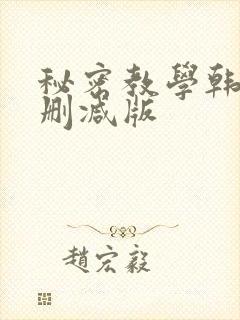 秘密教學韩
删减版
趙宏毅